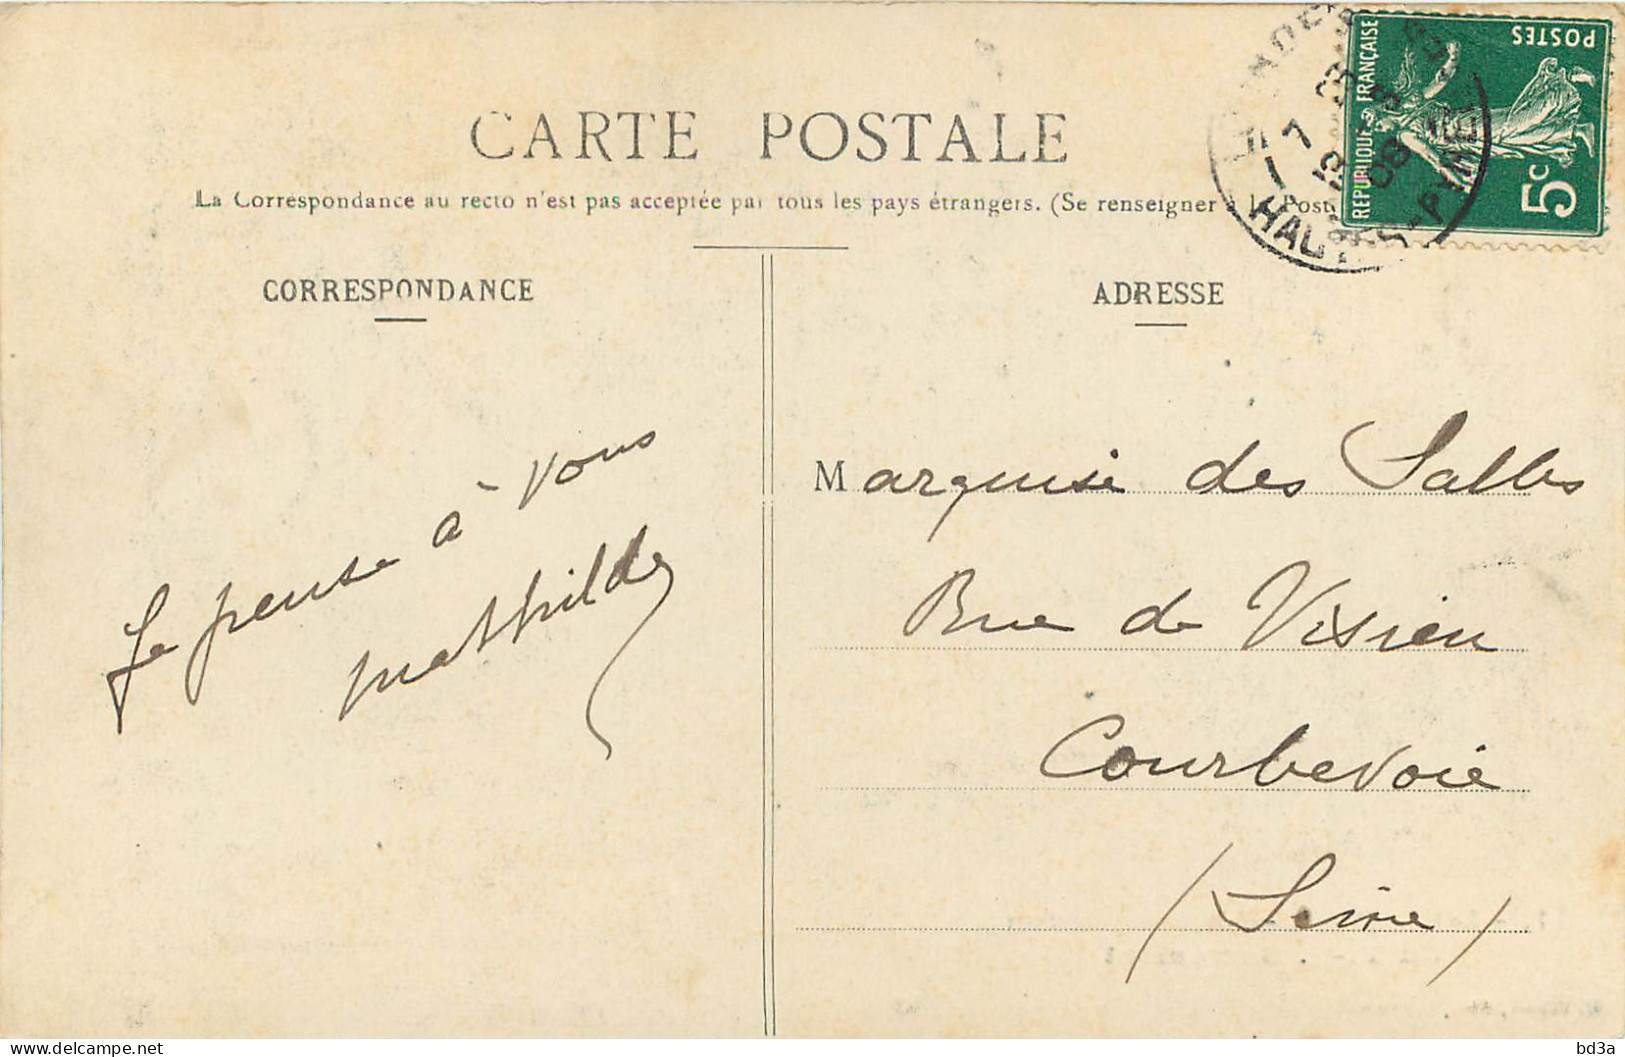 CARTE POSTALE
La Correspondance au recto n'est pas acceptée par tous les pays étrangers. (Se renseigner à la Poste
CORRESPONDANCE
Je pense à vous
mathilde
ADRESSE
Marquise des Salles
Rue de Visien
Courbevoie
(Seine)
REPUBLIQUE FRANÇAISE
POSTES
5c
HAUTES-PYRÉNÉES
08
bd3a